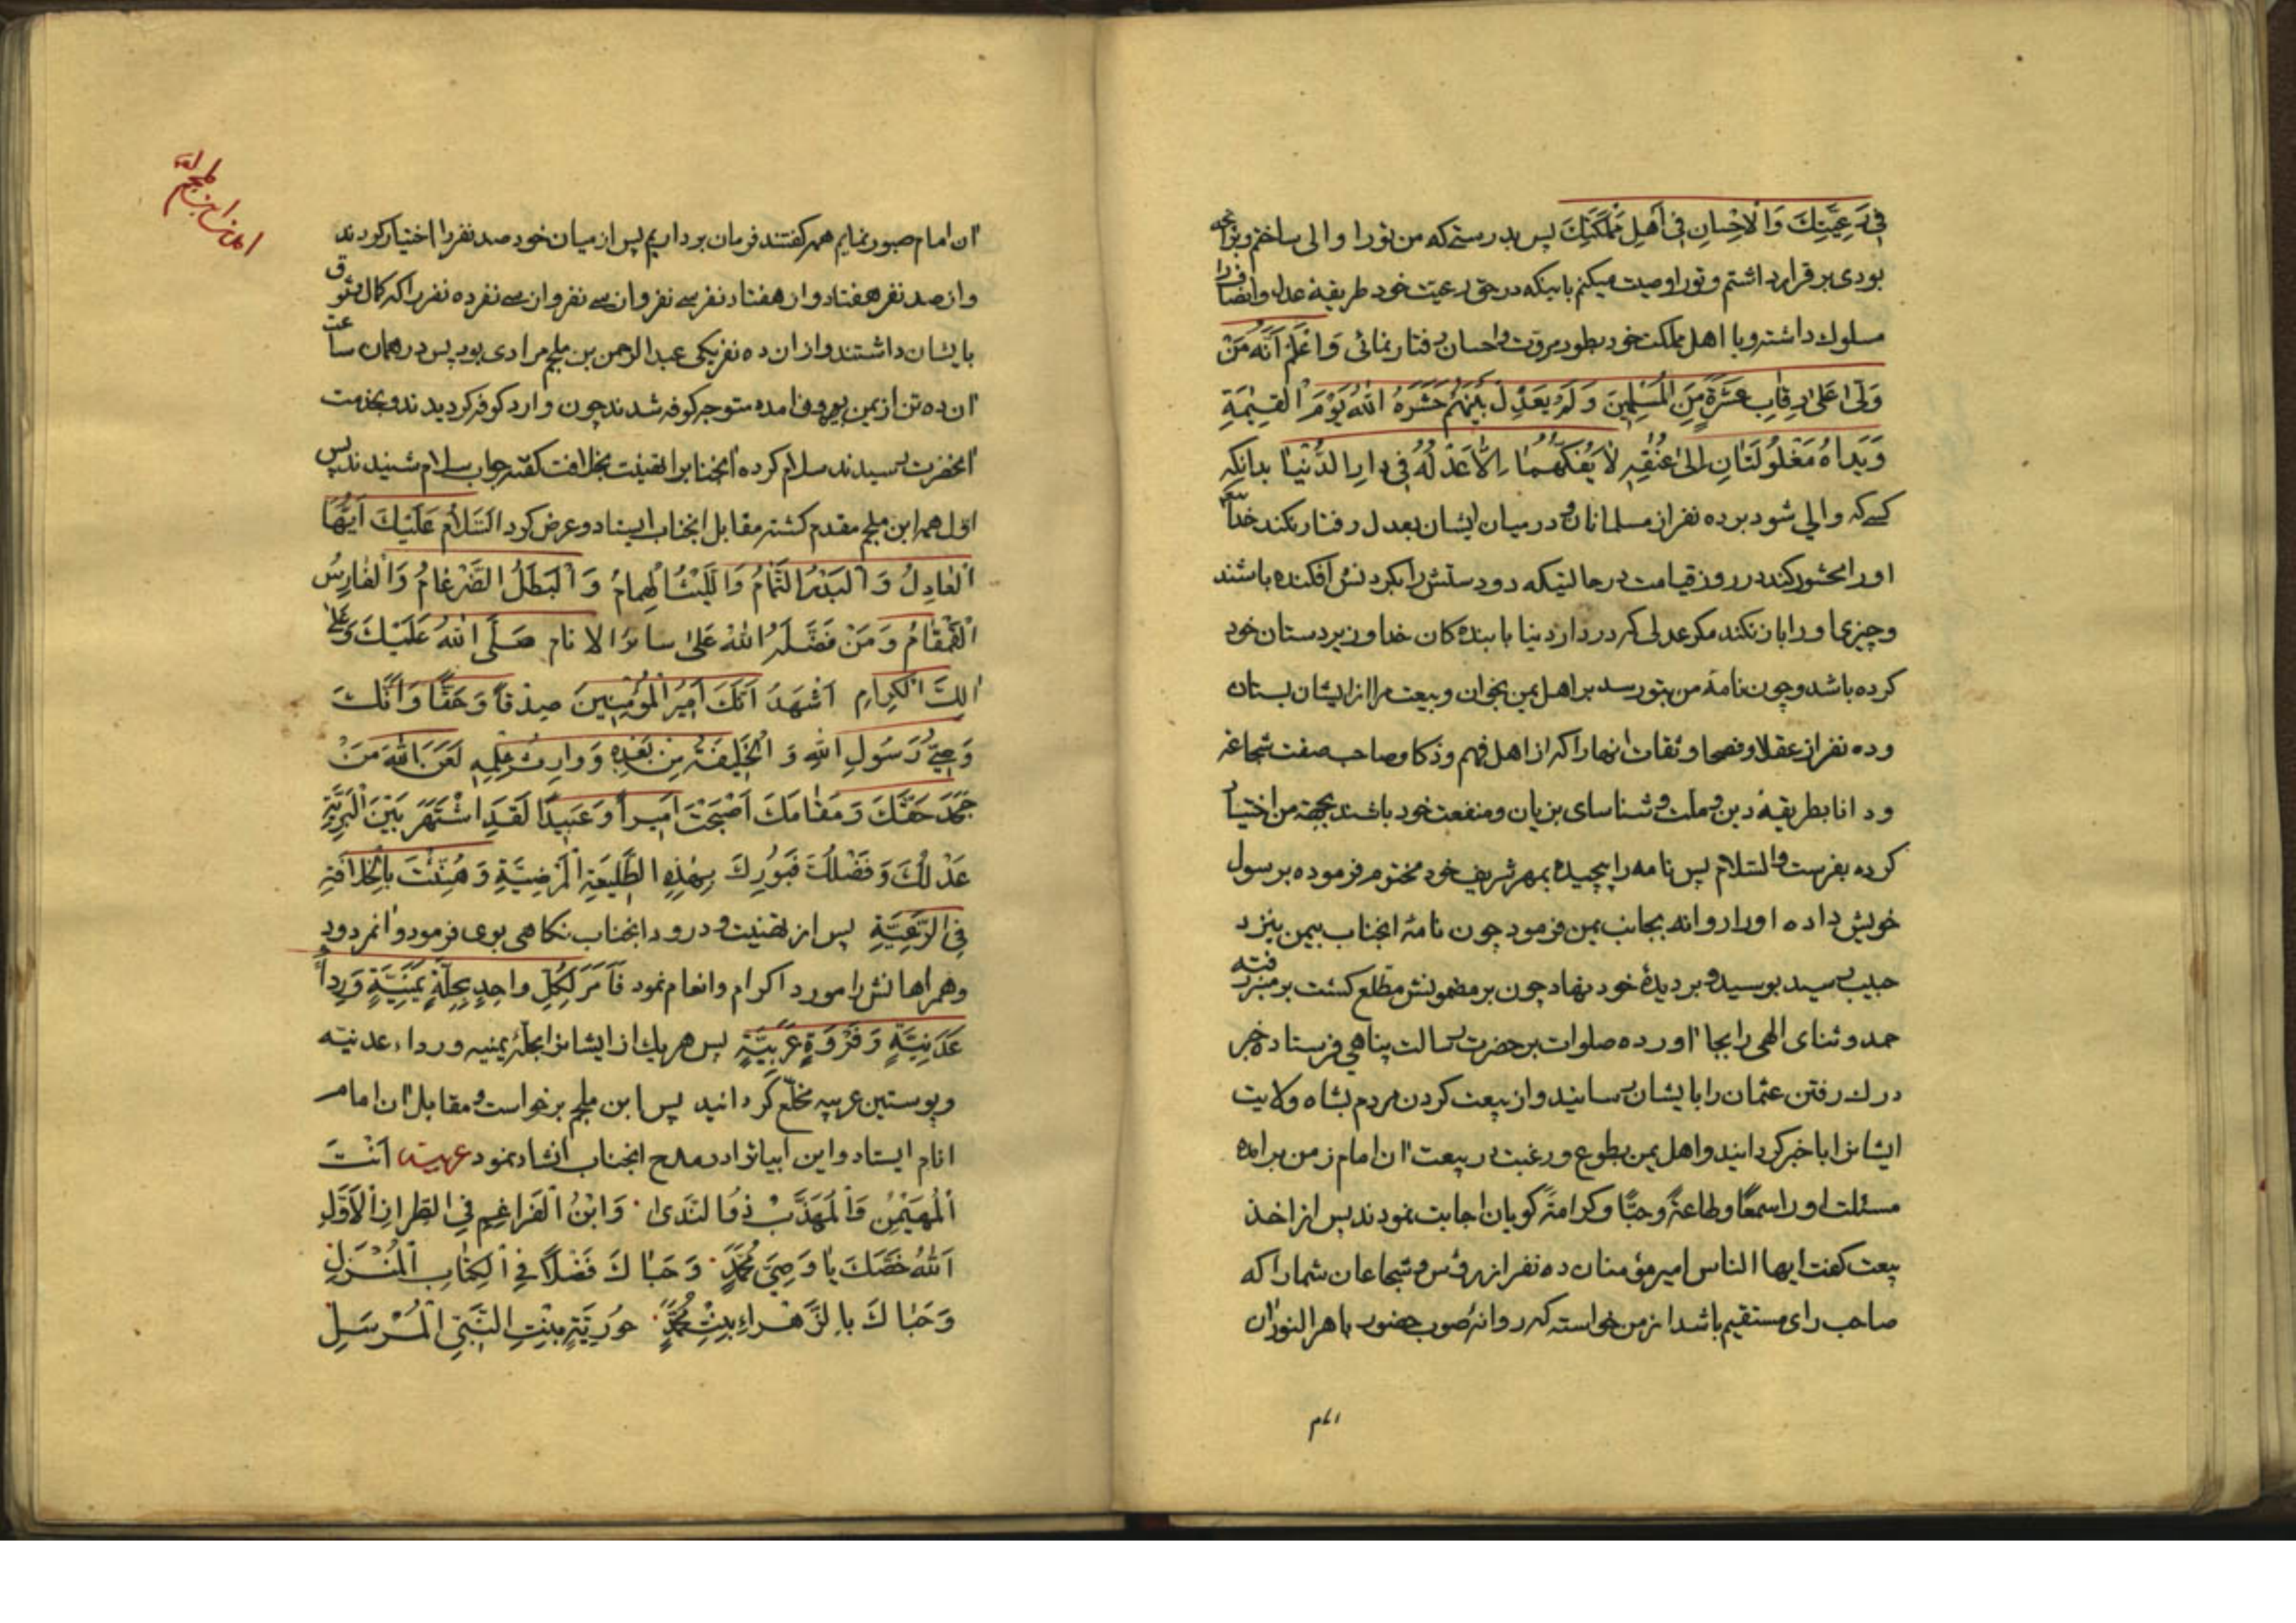 فِی رَعِیَّتِكَ وَالْاِحْسانِ فِی اَهْلِ مَمْلَكَتِكَ پس بدرستی که من تو را والی ساختم و بر آنچه
بودی برقرار داشتم و تو را وصیت میکنم باینکه در حق رعیت خود طریقهٔ عدل و انصاف را
مسلوك داشته و با اهل مملکت خود بطور مروّت و احسان رفتار نمائی وَاعْلَمْ اَنَّهُ مَنْ
وَلّیٰ عَلیٰ رِقابِ عَشَرَةٍ مِنَ الْمُسْلِمینَ وَ لَمْ یَعْدِلْ بَیْنَهُمْ حَشَرَهُ اللهُ یَوْمَ الْقِیٰمَةِ
وَ یَداهُ مَغْلُولَتانِ اِلیٰ عُنُقِهِ لا یَفُکُّهُما اِلّا عَدْلُهُ فِی دارِ الدُّنْیا بدانکه
کسی که والی شود بر ده نفر از مسلمانان و در میان ایشان بعدل رفتار نکند خدا
او را محشور کند در روز قیامت در حالتیکه دو دستش را بگردنش افکنده باشند
و چیزی او را باز نکند مگر عدلی که در دار دنیا با بنده کان خدا و زیردستان خود
کرده باشد و چون نامهٔ من بتو رسد بر اهل یمن بخوان و بیعت مرا از ایشان بستان
و ده نفر از عقلا و فصحا و ثقات آنها را که از اهل فهم و ذکا و صاحب صفت شجاعه
و دانا بطریقهٔ دین و ملت و شناسای بزیان و منفعت خود باشند بجهة من اختیار
کرده بفرست والسّلام پس نامه را پیچیده بمهر شریف خود مختوم فرموده برسول
خویش داده او را روانه بجانب یمن فرمود چون نامهٔ آنجناب بیمن بنزد
حبیب رسید بوسید و بر دیدهٔ خود نهاد چون بر مضمونش مطّلع گشت بر منبر رفته
حمد و ثنای الهی را بجا آورده صلوات بر حضرت رسالت پناهی فرستاده خبر
درك رفتن عثمان را بایشان رسانید و از بیعت کردن مردم بشاه ولایت
ایشانرا با خبر گردانید و اهل یمن بطوع و رغبت در بیعت آن امام زمن برآمده
مسئلت او را سمعًا و طاعةً و حبًّا و کرامةً گویان اجابت نمودند پس از اخذ
بیعت گفت ایها الناس امیر مؤمنان ده نفر از رؤس و شجاعان شما را که
صاحب رای مستقیم باشد از من خواسته که روانهٔ صوب حضور باهر النور آن
آن امام صبور نمایم همه گفتند فرمان برداریم پس از میان خود صد نفر را اختیار کردند
و از صد نفر هفتاد و از هفتاد نفر سی نفر و از سی نفر و از سی نفر ده نفر را که کمال وثوق
بایشان داشتند و از آن ده نفر یکی عبدالرحمن بن ملجم مرادی بود پس در همان ساعت
آن ده تن از یمن بیرون آمده متوجه کوفه شدند چون وارد کوفه گردیدند و بخدمت
آنحضرت رسیدند سلام کرده آنجنابرا تهنیت بخلافت گفته جواب سلام شنیدند پس
اوّل همه ابن ملجم مقدم گشته مقابل آنجناب ایستاد و عرض کرد اَلسَّلامُ عَلَیْكَ اَیُّهَا
الْعادِلُ وَ الْبَدْرُ التَّمامُ وَ اللَّیْثُ الْهُمامُ وَ الْبَطَلُ الضَّرْغامُ وَ الْفارِسُ
الْقَمْقامُ وَ مَنْ فَضَّلَهُ اللهُ عَلیٰ سائر الانام صَلَّی اللهُ عَلَیْكَ وَ عَلیٰ
آلِكَ الْکِرامِ اَشْهَدُ اَنَّكَ اَمیرُ الْمُؤْمِنینَ صِدْقًا وَ حَقًّا وَ اَنَّكَ
وَصِیُّ رَسُولِ اللهِ وَ الْخَلیفَةُ مِنْ بَعْدِهِ وَ وارِثُ عِلْمِهِ لَعَنَ اللهُ مَنْ
جَحَدَ حَقَّكَ وَ مَقامَكَ اَصْبَحْتَ اَمیراً وَ عَمیدًا لَقَدِ اشْتَهَرَ بَیْنَ الْبَرِیَّةِ
عَدْلُكَ وَ فَضْلُكَ فَبُورِكَ بِهٰذِهِ الطَّلیعَةِ الْمَرْضِیَّةِ وَ هُنِّئْتَ بِالْخِلافَةِ
فِی الرَّعِیَّةِ پس از تهنیت و درود آنجناب نگاهی بوی فرمود و آنمردود
و همراهانش را مورد اکرام و انعام نمود فَاَمَرَ لِکُلِّ واحِدٍ بِحُلَّةٍ یَمَنِیَّةٍ وَ رِداءٍ
عَدَنِیَّةٍ وَ فَرْوَةٍ عَرَبِیَّةٍ پس هر یك از ایشانرا بحلّهٔ یمنیه و رداء عدنیّه
و پوستین عربیه مخلّع گردانید پس ابن ملجم برخواست و مقابل آن امام
انام ایستاد و این ابیاترا در مدح آنجناب انشاد نمود عربیه اَنْتَ
الْمُهَیْمِنُ وَ الْمُهَذَّبُ ذُو النَّدیٰ وَ ابْنُ الْضَراغِمِ فِی الطِرازِ الْاَوَّلِ
اَللهُ خَصَّكَ یا وَصِیَّ مُحَمَّدٍ وَ حَباكَ فَضْلًا فِی الْکِتابِ الْمُنْزَلِ
وَ حَباكَ بِالزَّهْراءِ بِنْتِ مُحَمَّدٍ حُورِیَّةٍ بِنْتِ النَّبِیِّ الْمُرْسَلِ